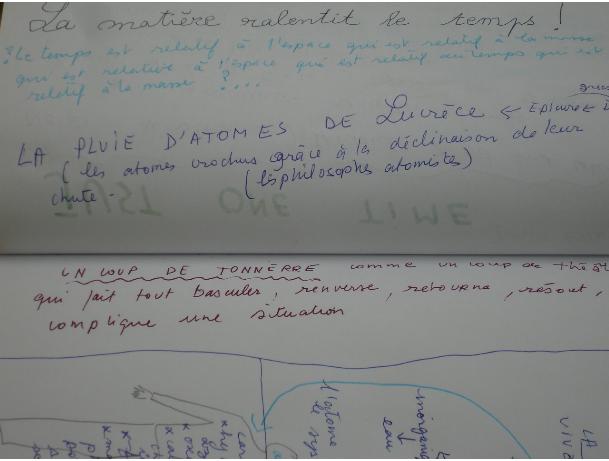 La matière ralentit le temps !
? Le temps est relatif à l'espace qui est relatif à la masse
qui est relative à l'espace qui est relatif au temps qui est
relatif à la masse ? ...
LA PLUIE D'ATOMES DE Lucrèce ← Epicure ←
(les atomes crochus grâce à la déclinaison de leur
chute. (les philosophes atomistes)
TIME ONE
UN COUP DE TONNERRE comme un coup de théât
qui fait tout basculer, renverse, retourne, résout,
complique une situation
l'atome
le sys
inorgani
↓
eau
LA
VIV